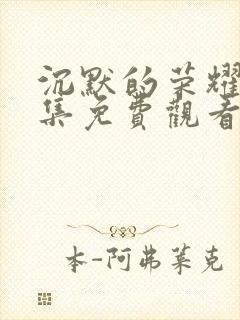 沉默的荣耀
集免費觀看
本-阿弗莱克